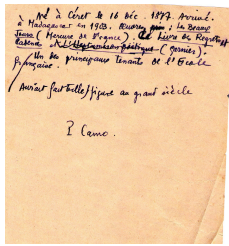 Né à Céret le 16 Déc. 1877 Arrivé
à Madagascar en 1903. Œuvres: Le Beaux
Jours (Mercure de France). Le Livre des Regrets
(Garnier).
Un des principaux tenants de l'Ecole
française.
Aurait fait belle figure au grand siècle
P Camo.